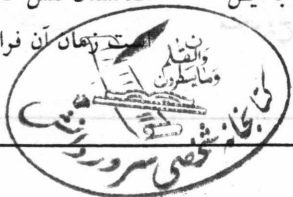 است زمان آن فرا
ن
والقلم
وما یسطرون
کتابخانه شخصی سرور دانش